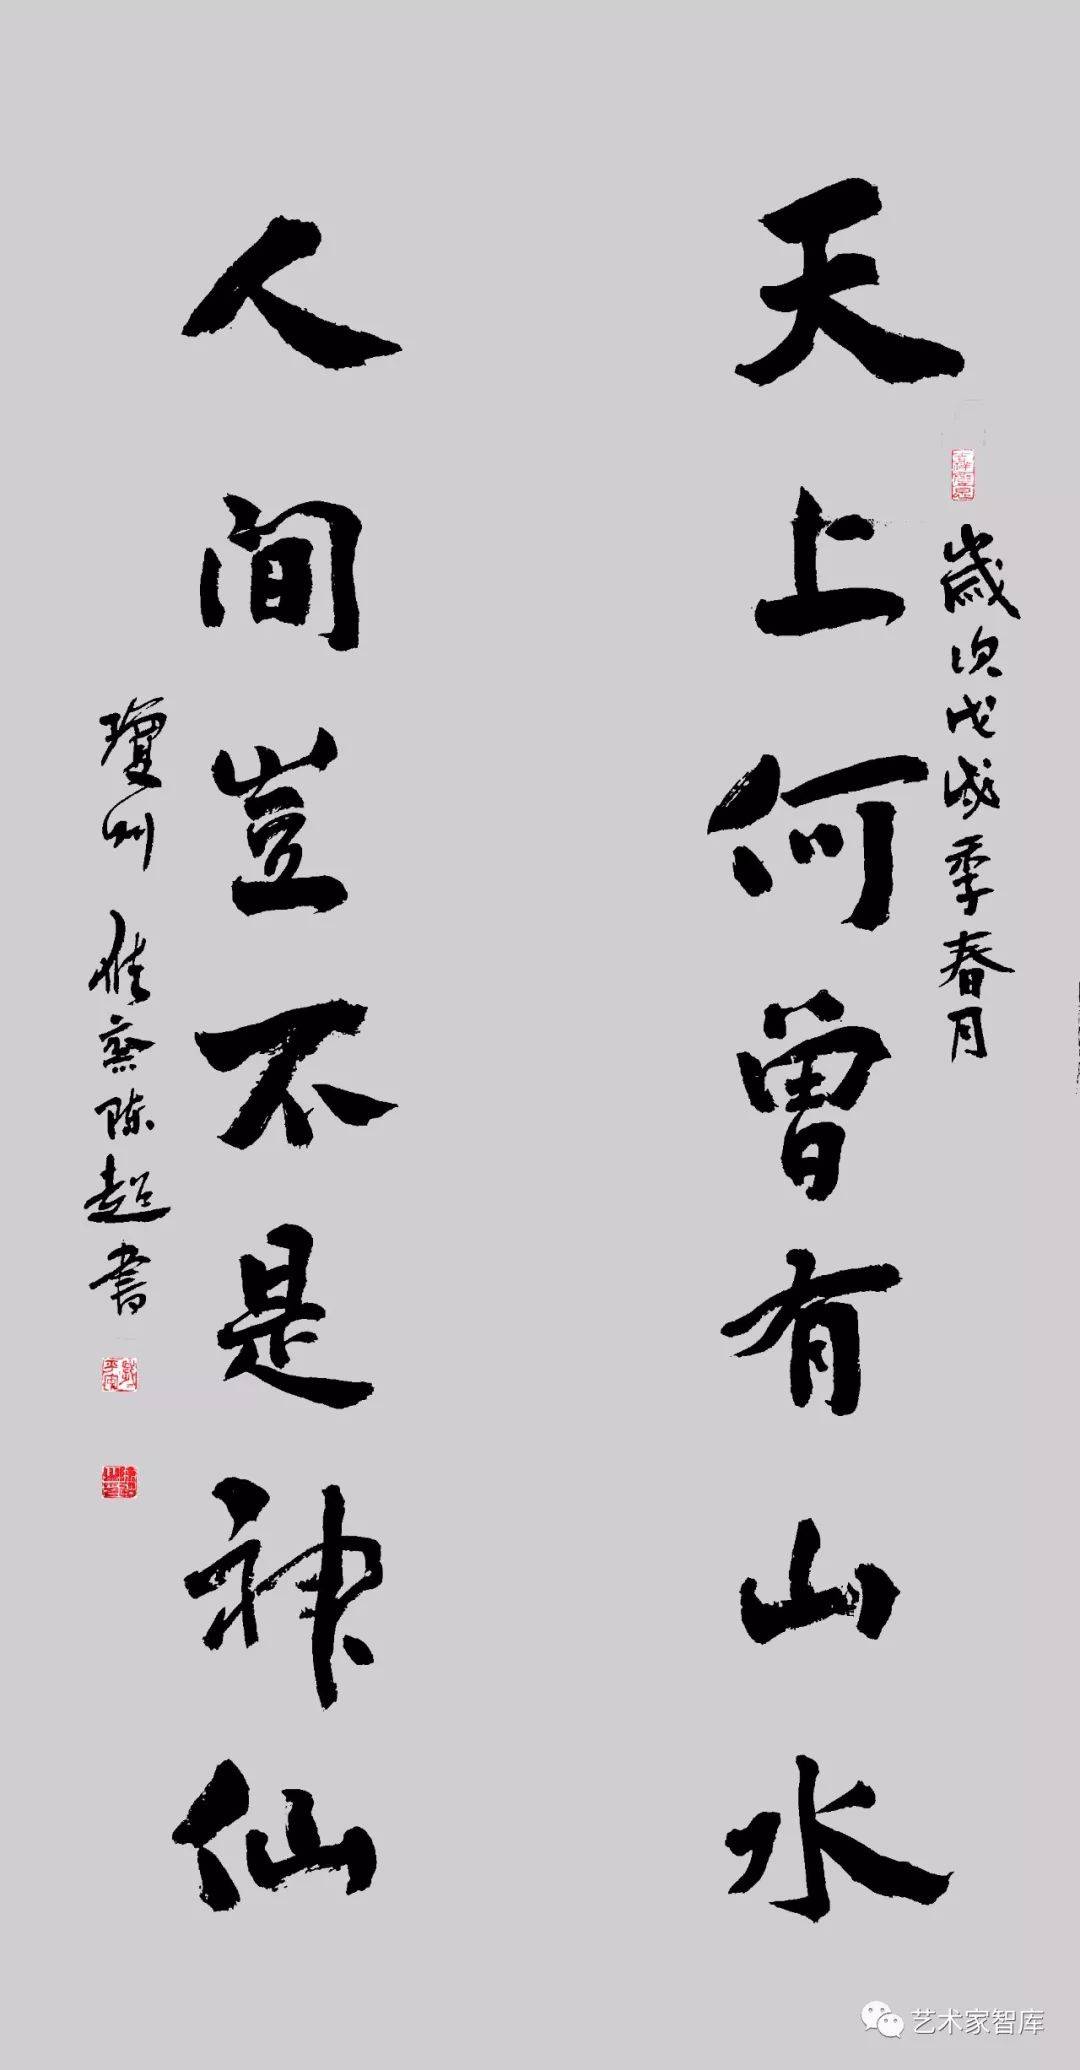 天上何曾有山水
歲次戊戌季春月
人间豈不是神仙
瓊州 齋陈超書
艺术家智库